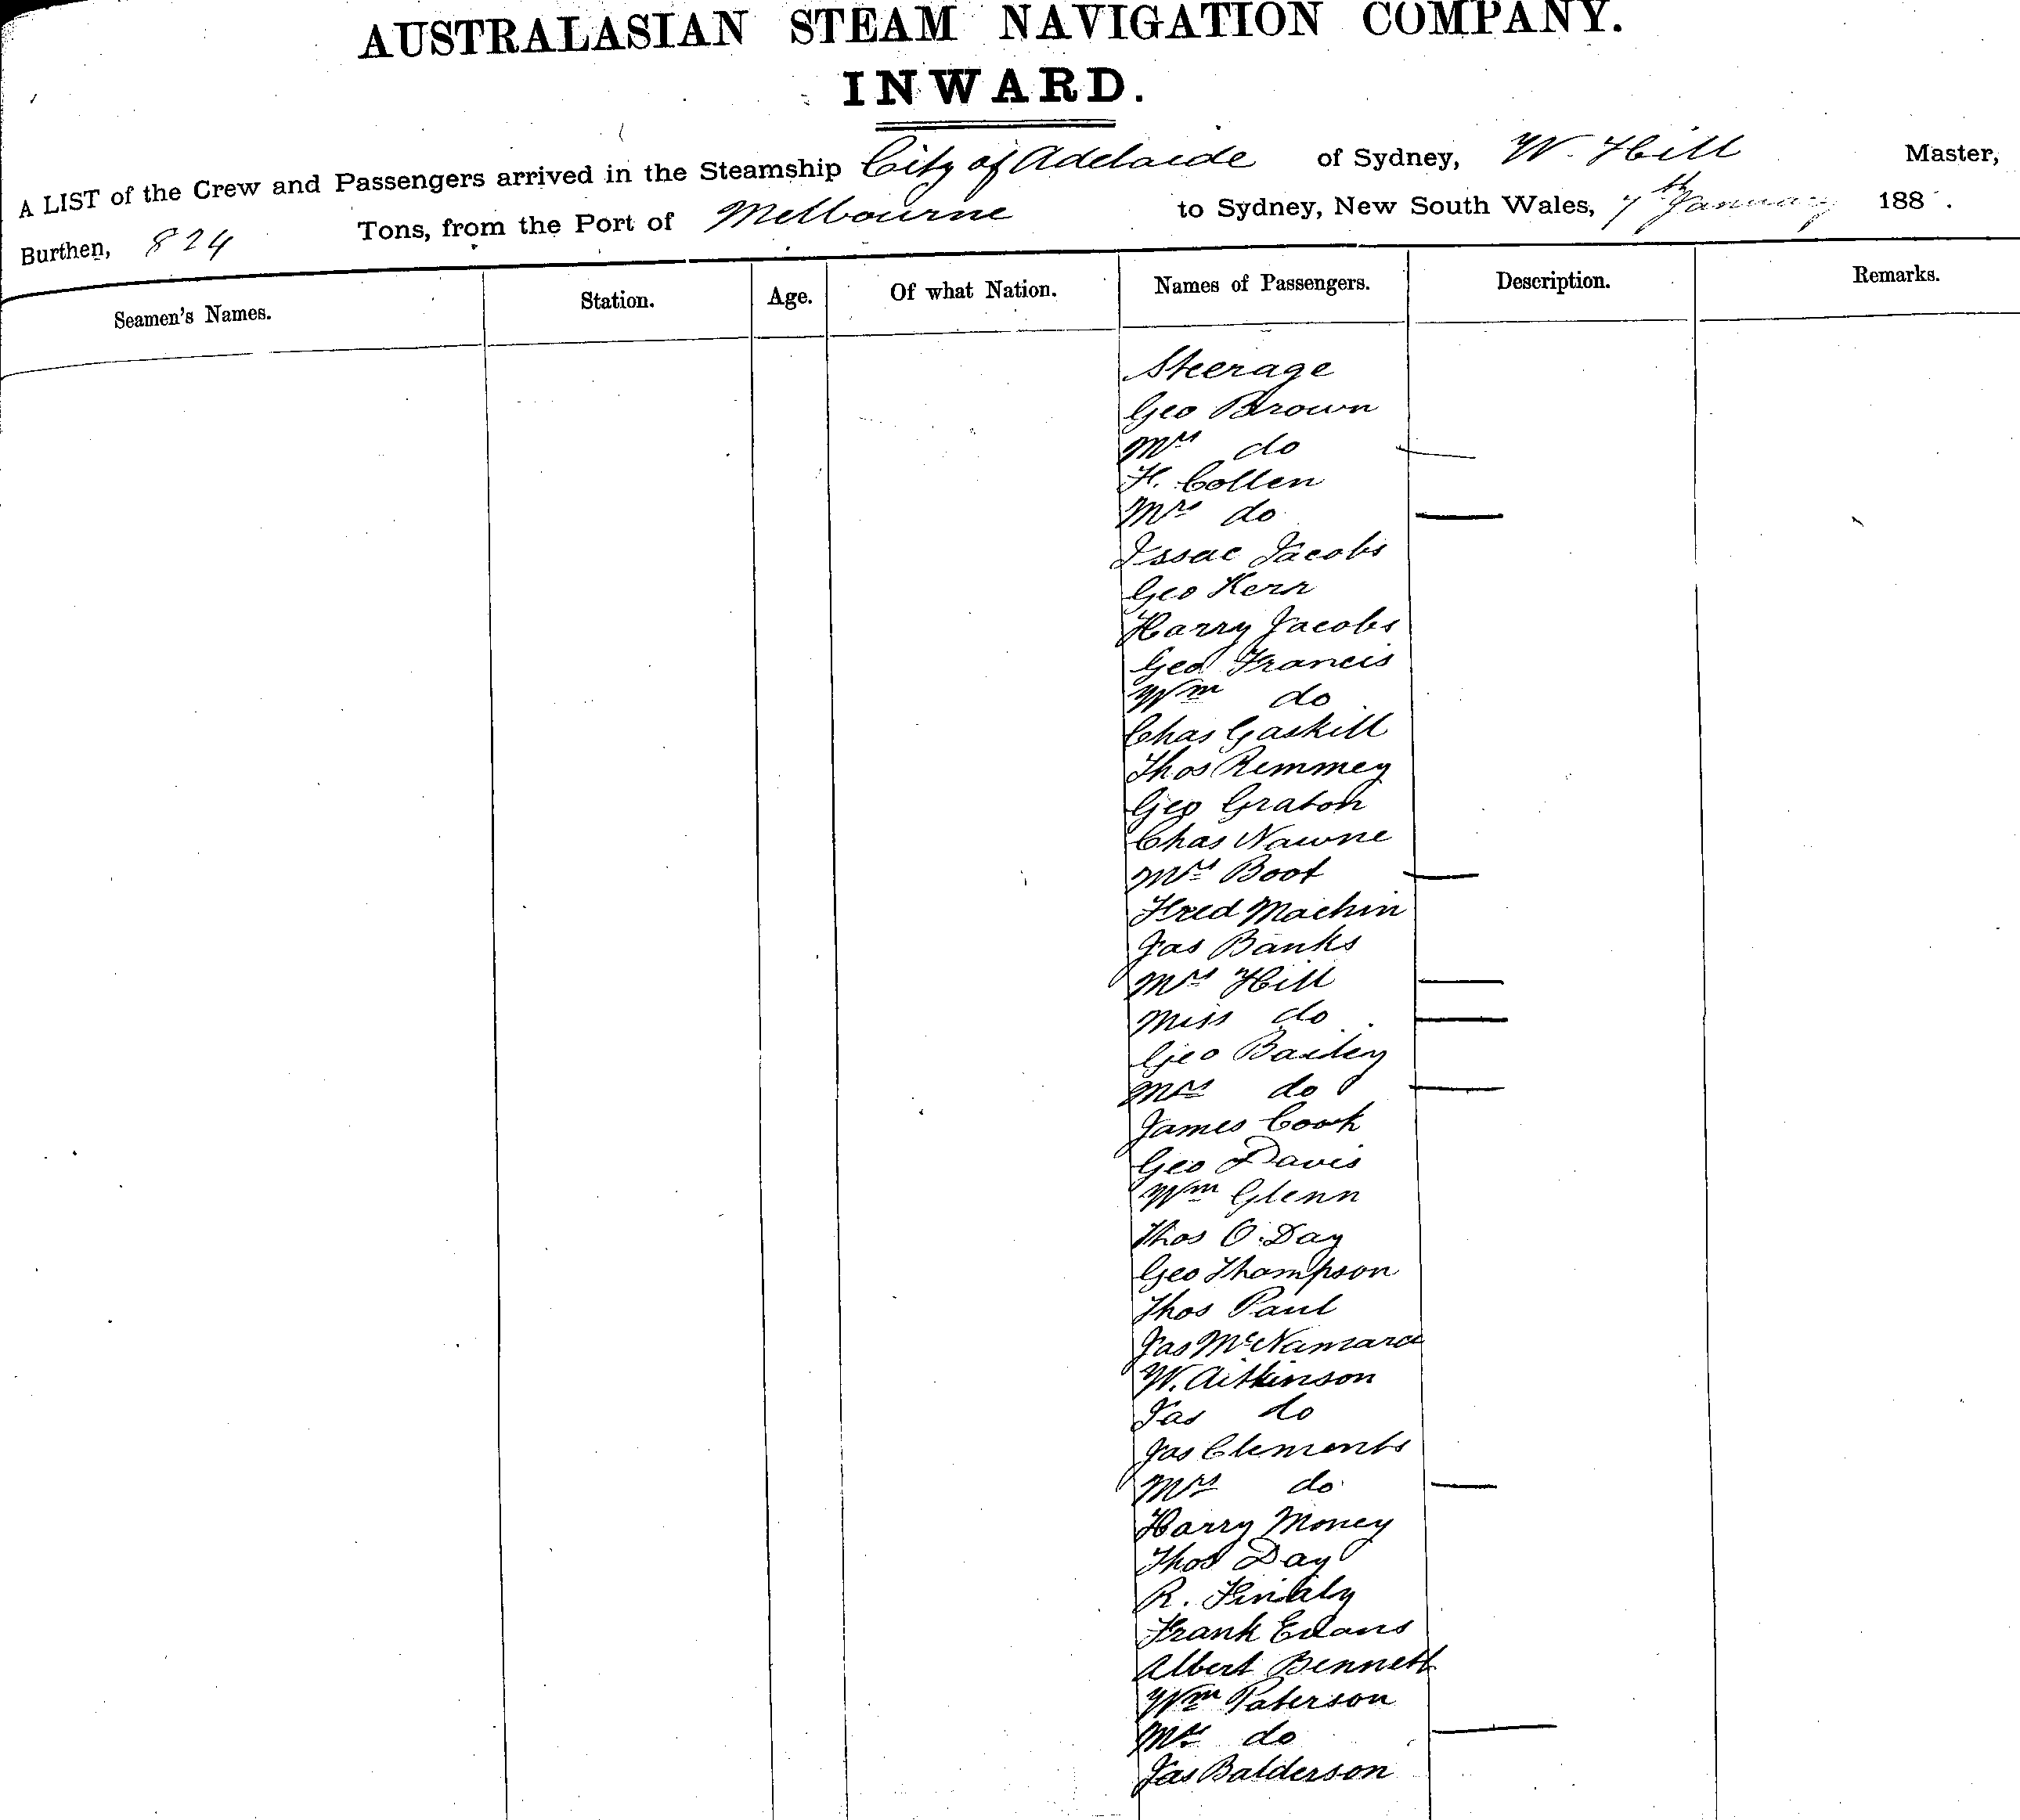 AUSTRALASIAN STEAM NAVIGATION COMPANY.
INWARD.
A LIST of the Crew and Passengers arrived in the Steamship City of Adelaide of Sydney, W. Hill Master,
Burthen, 824 Tons, from the Port of Melbourne to Sydney, New South Wales, 7th January 188 .
Seamen's Names. Station. Age. Of what Nation. Names of Passengers. Description. Remarks.
Steerage
Geo Brown
Mrs do
H. Collen
Mrs do
Issac Jacobs
Geo Kerr
Harry Jacobs
Geo Francis
Wm do
Chas Gaskill
Thos Remmey
Geo Graton
Chas Nawne
Mrs Boot
Fred Machin
Jas Banks
Mrs Hill
Miss do
Geo Bailey
Mrs do
James Cook
Geo Davis
Wm Glenn
Thos O.Day
Geo Thompson
Thos Paul
Jas McNamara
W. Aitkinson
Jas do
Jas Clements
Mrs do
Harry Money
Thos Day
R.
Frank Evans
Albert Bennett
Wm Paterson
Mrs do
Jas Balderson